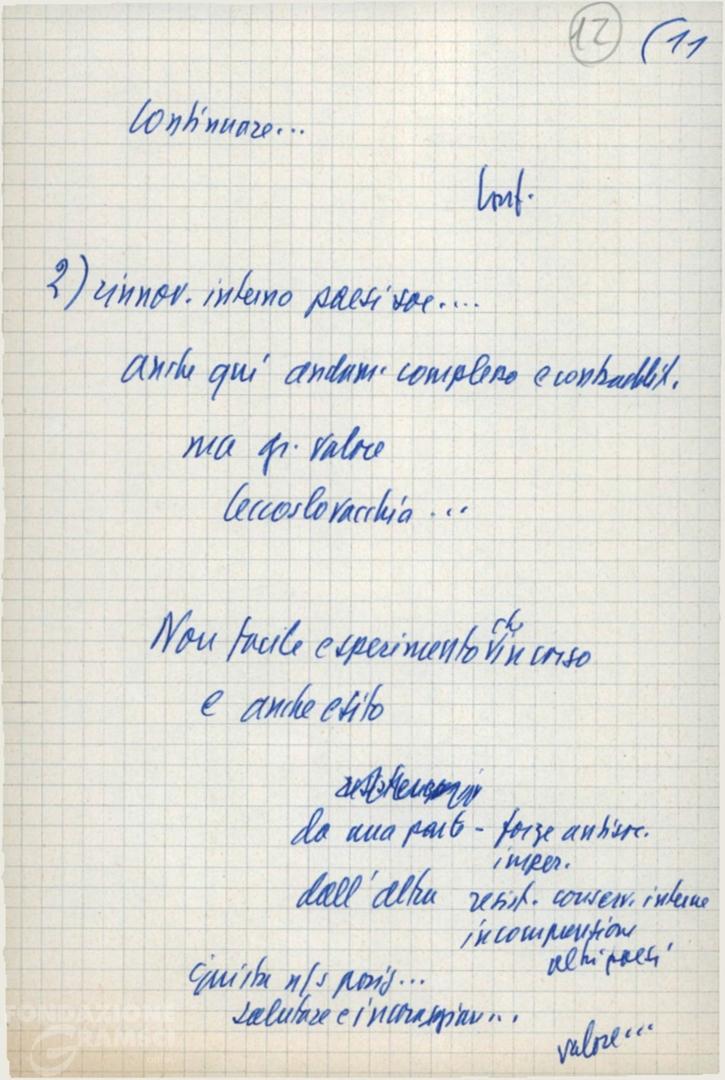 12 (11
Continuare...
Conf.
2) rinnov. interno paesi soc....
anche qui andam. complesso e contraddit.
ma gr. valore
Cecoslovacchia...
Non facile esperimento ch in corso
e anche esito
da una parte - forze antisoc.
imper.
dall'altra resist. conserv. interne
incomprensione
altri paesi
Giusta n/s posiz...
salutare e incoraggiare...
valore...
FONDAZIONE
GRAMSCI